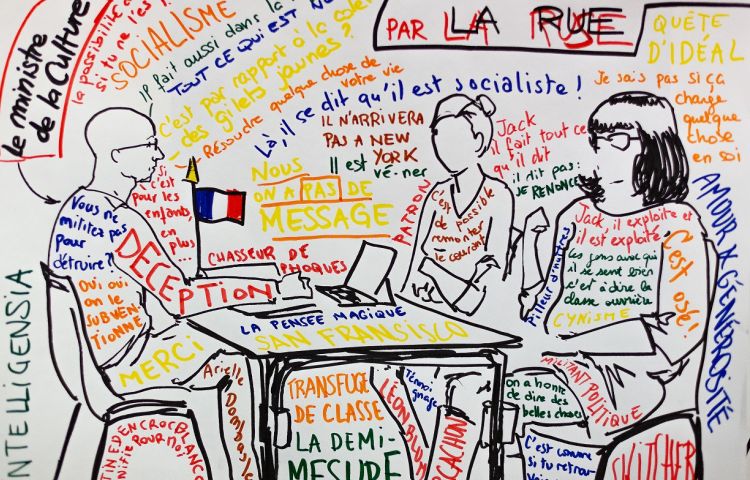 Le ministre
de la Culture
la possibilité
si tu ne l'es
SOCIALISME
IP fait aussi dans le
TOUT CE QUI EST NO
C'est par rapport à la coler
des gilets jaunes?
RESOUDRE quelque chose de
votre vie
Là, il se dit qu'il est socialiste!
PAR LA RUE
QUÊTE
D'IDÉAL
Je sais pas si ça
change
quelque
chose
en soi
IL N'ARRIVERA
PAS A NEW
YORK
IL EST vé-ner
Jack
il fait tout ce
qu'il dit
il dit pas:
JE RENONCE
NOUS
ON A PAS DE
MESSAGE
Si
c'est
pour les
enfants,
en
plus...
Vous ne
militez pas
pour
détruire?
OUI OUI
on le
SUBVEN-
TIONNE
DECEPTION
CHASSEUR DE
PHOQUES
PATRON
C'est
de possible
remonter
le courant
Jack, il exploite et
il est exploité
Les gens aussi qui
il se sent bien
c'est à dire la
classe ouvrière
CYNISME
C'est osé!
AMOUR * GÉNÉROSITÉ
INTELLIGENSIA
MERCI
LA PENSEE MAGIQUE
SAN FRANSISCO
Arielle
Dombasle
TRANSFUGE
DE CLASSE
LA DEMI-
MESURE
LÉON BLUM
Témoi
gnage
MILITANT POLITIQUE
on a honte
de dire des
belles choses
C'est comme
si tu retrou-
SWITCHER